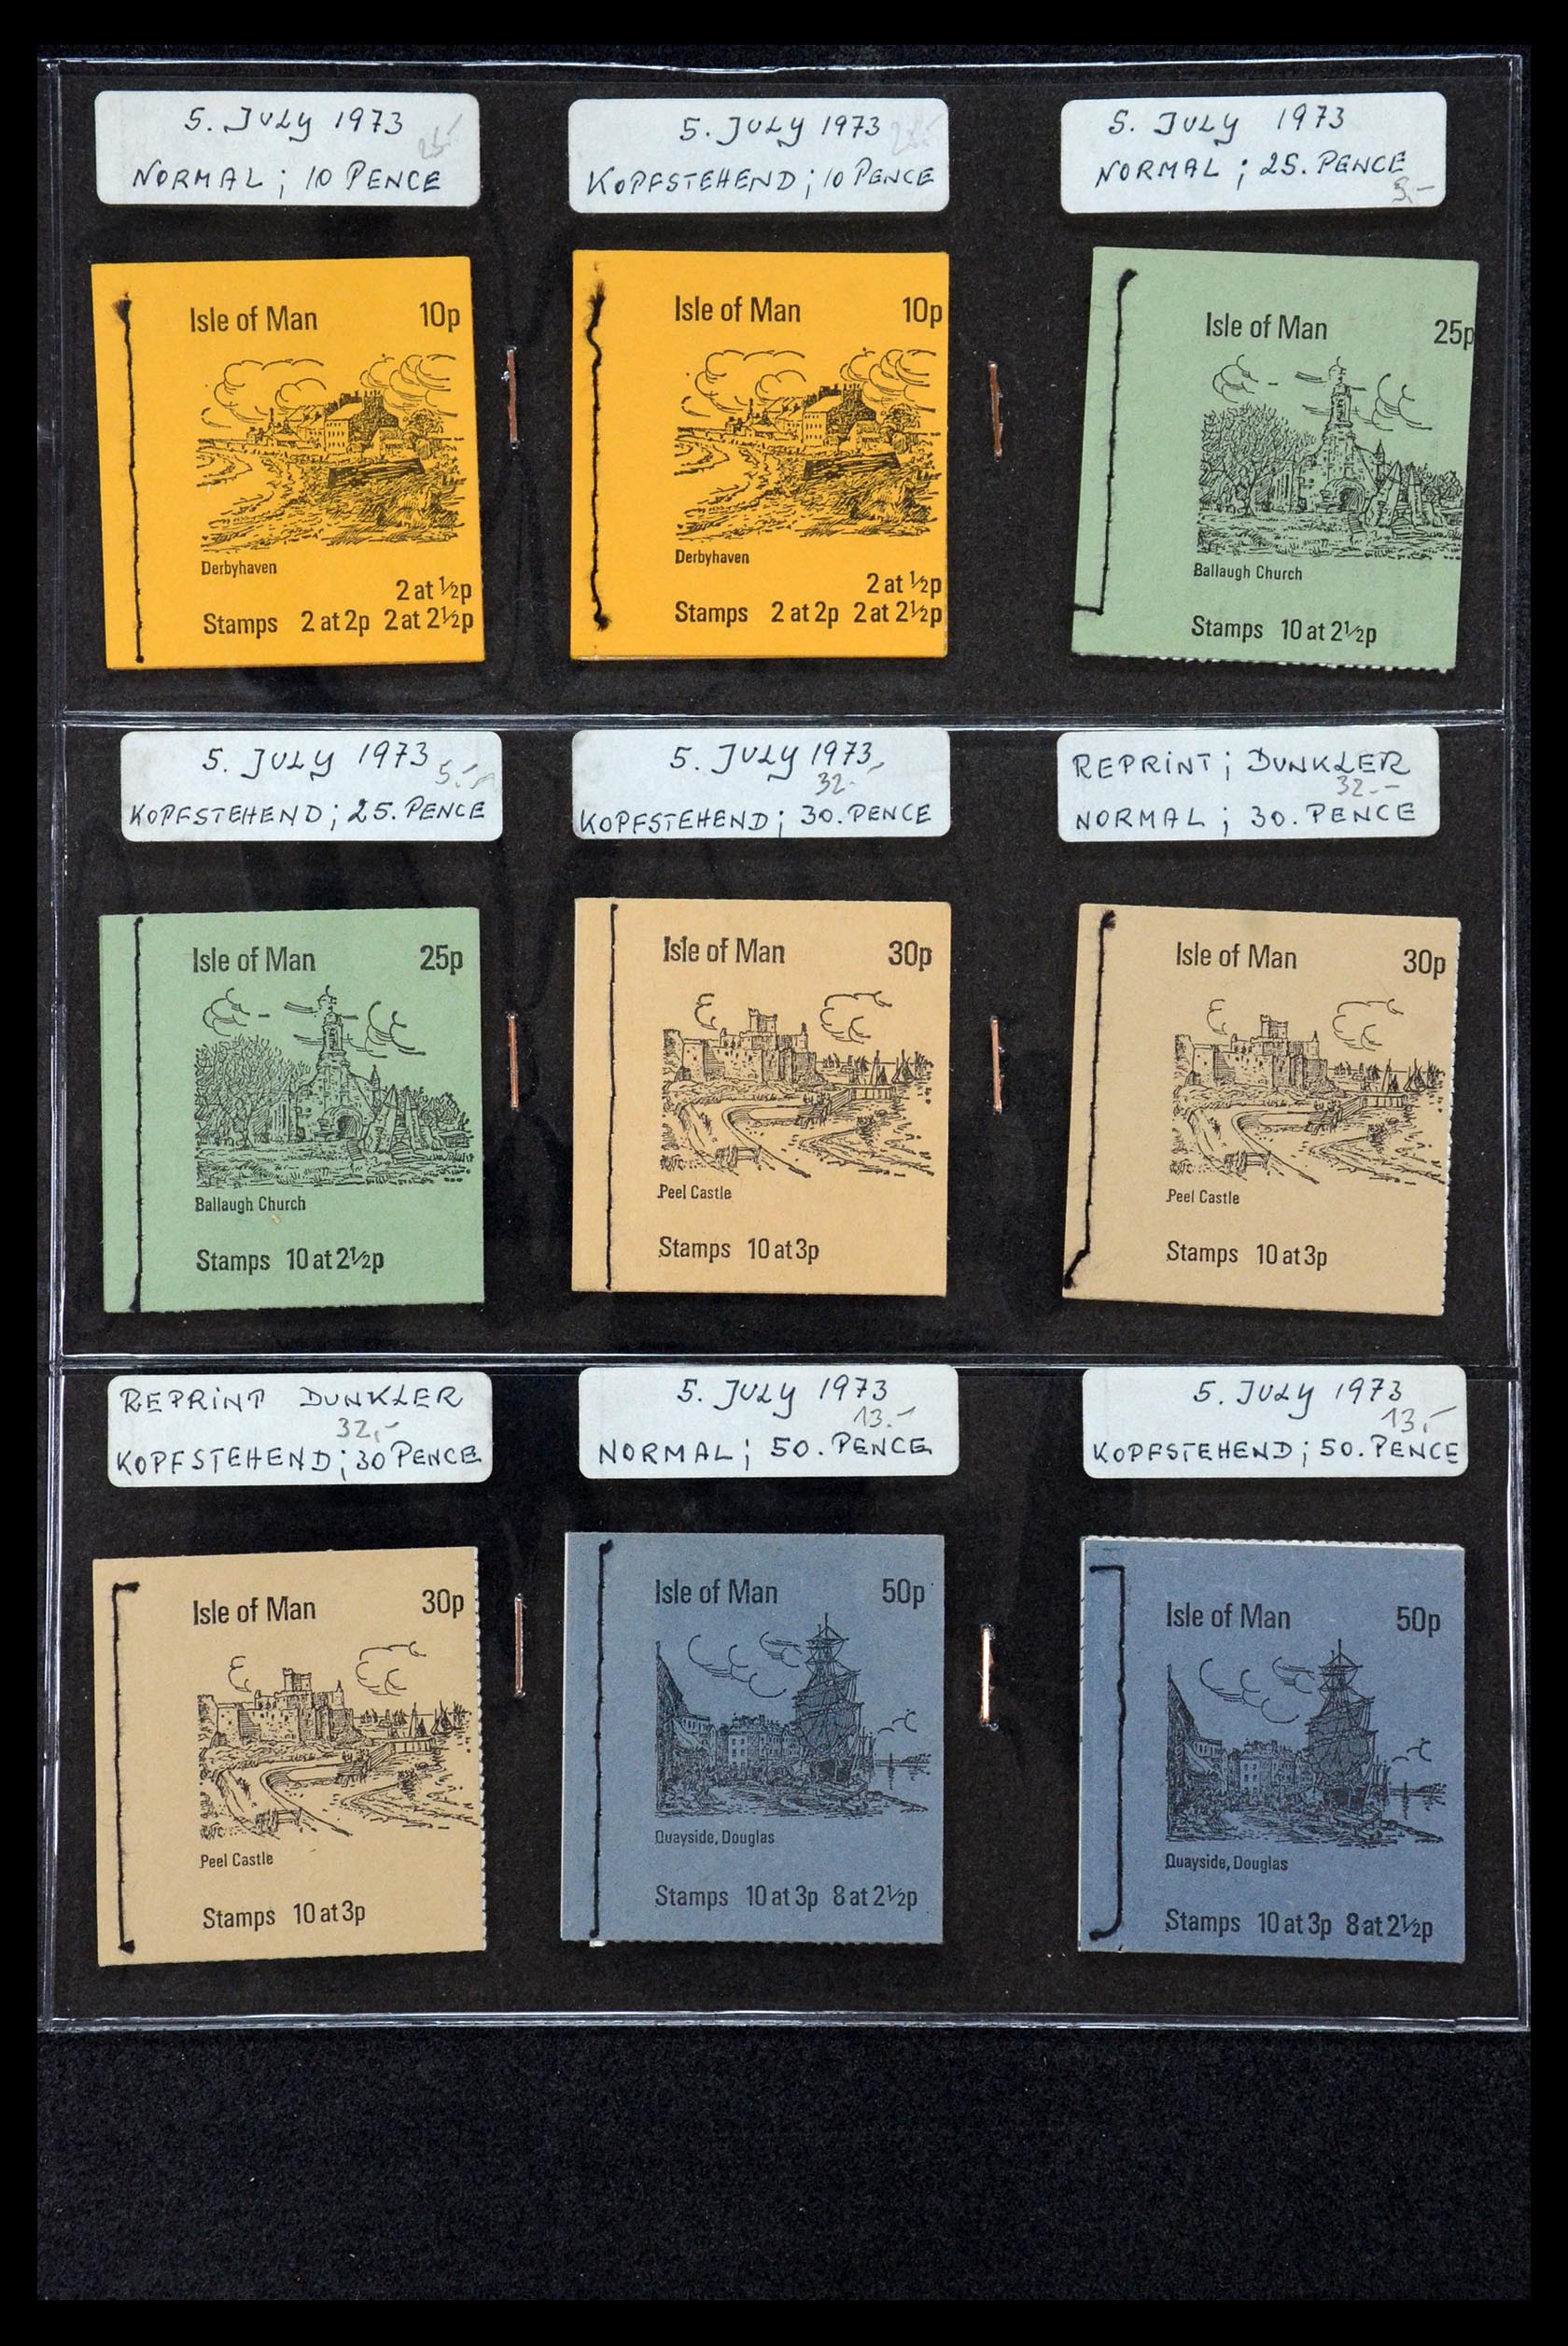 5. JULY 1973
NORMAL; 10 PENCE
Isle of Man 10p
Derbyhaven
2 at ½p
Stamps 2 at 2p 2 at 2½p
5. JULY 1973
KOPFSTEHEND; 10 PENCE
Isle of Man 10p
Derbyhaven
2 at ½p
Stamps 2 at 2p 2 at 2½p
5. JULY 1973
NORMAL; 25. PENCE
Isle of Man 25p
Ballaugh Church
Stamps 10 at 2½p
5. JULY 1973
5.-
KOPFSTEHEND; 25. PENCE
Isle of Man 25p
Ballaugh Church
Stamps 10 at 2½p
5. JULY 1973
32.-
KOPFSTEHEND; 30. PENCE
Isle of Man 30p
Peel Castle
Stamps 10 at 3p
REPRINT; DUNKLER
32.-
NORMAL; 30. PENCE
Isle of Man 30p
Peel Castle
Stamps 10 at 3p
REPRINT DUNKLER
32,-
KOPFSTEHEND; 30 PENCE
Isle of Man 30p
Peel Castle
Stamps 10 at 3p
5. JULY 1973
13.-
NORMAL; 50. PENCE
Isle of Man 50p
Quayside, Douglas
Stamps 10 at 3p 8 at 2½p
5. JULY 1973
13,-
KOPFSTEHEND; 50. PENCE
Isle of Man 50p
Quayside, Douglas
Stamps 10 at 3p 8 at 2½p